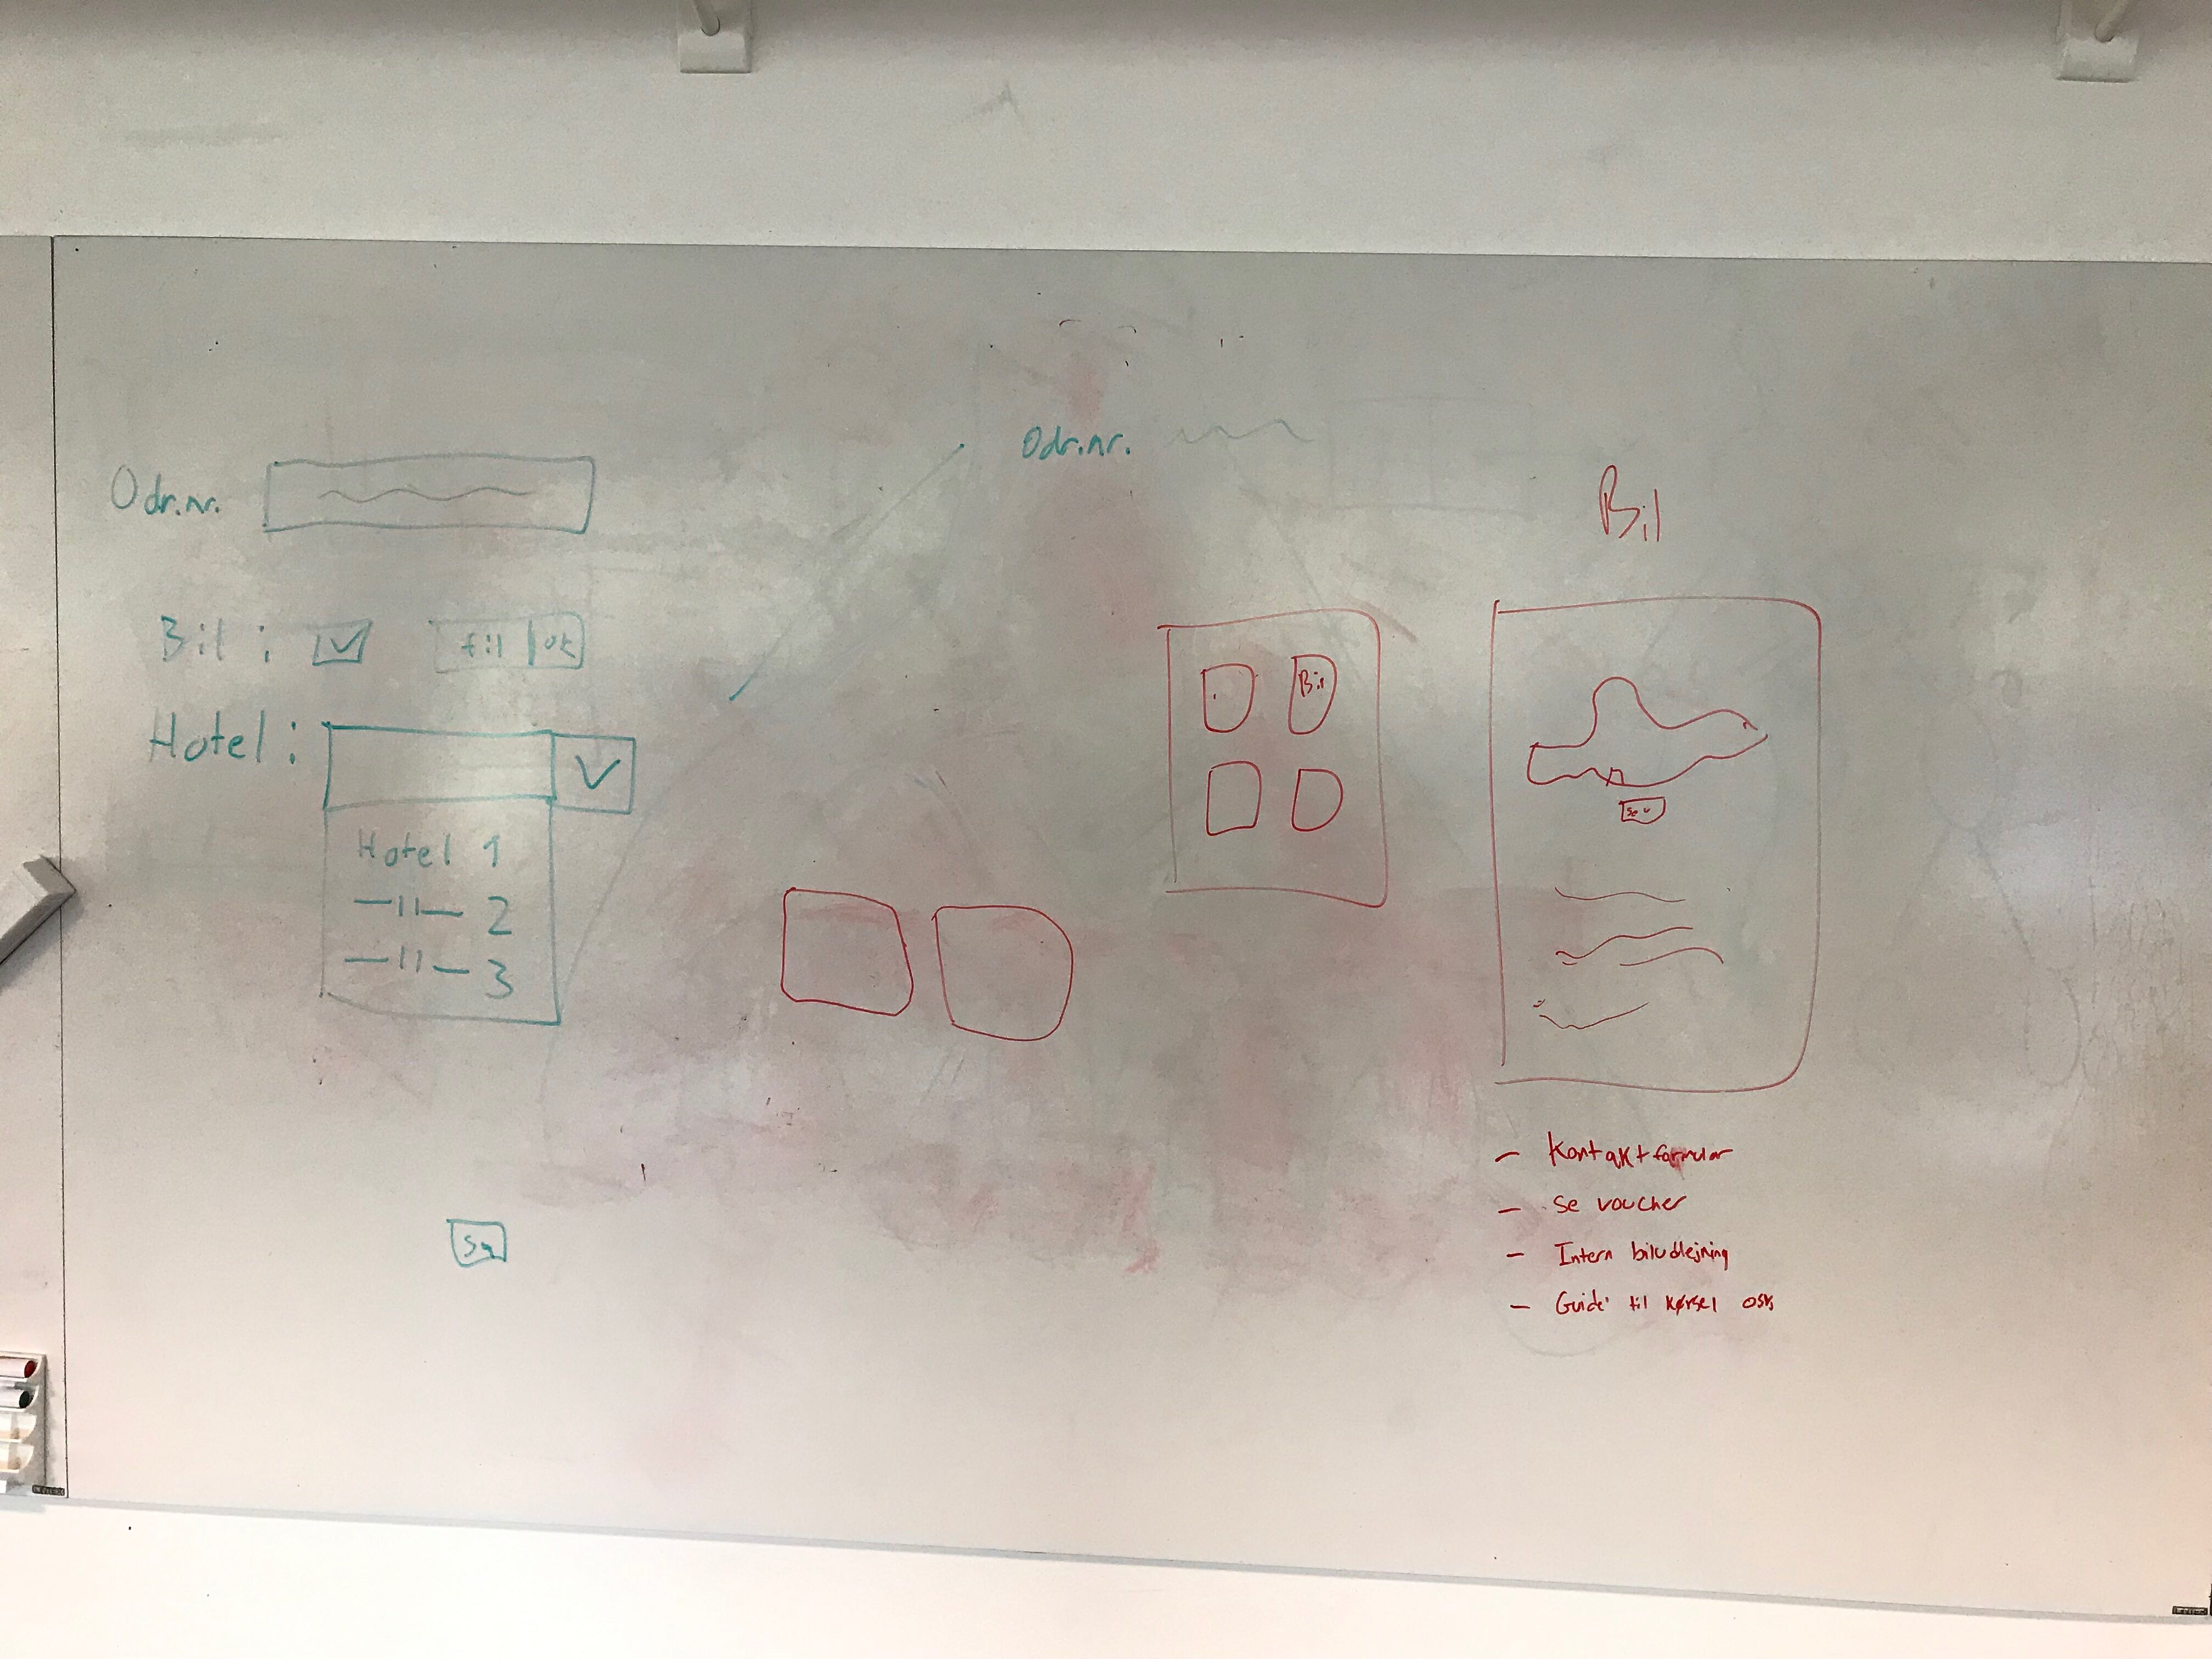 Odr.nr.
Bil : fil ok
Hotel :
Hotel 1
—11— 2
—11— 3
Odr.nr.
Bil
Bil
- Kontaktformular
- Se voucher
- Intern biludlejning
- Guide til kørsel osv